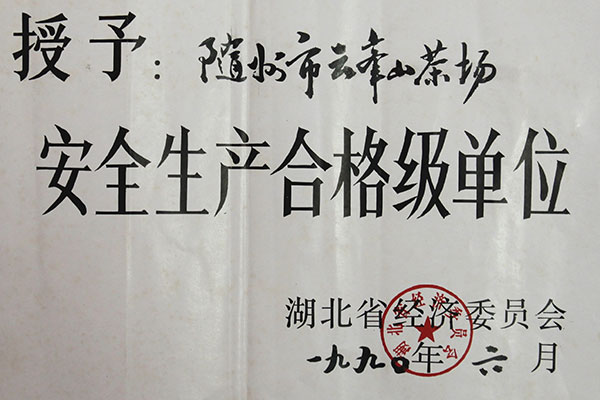 授予：随州市云峰山茶场
安全生产合格级单位
湖北省经济委员会
一九九〇年六月
湖北省经济委员会